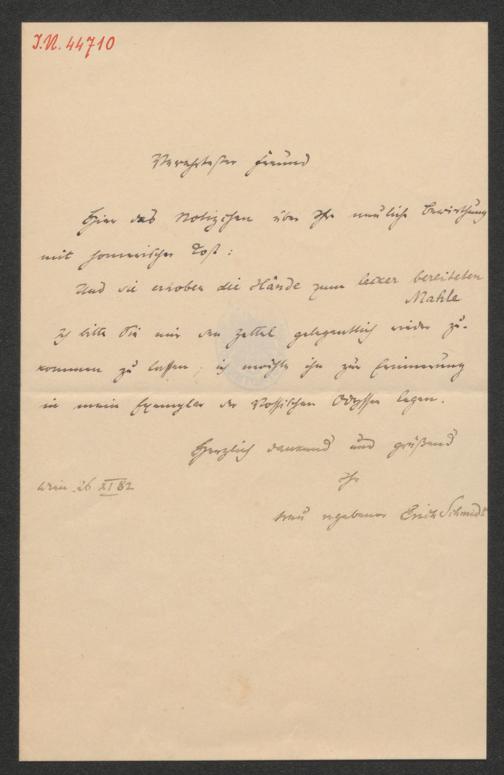 I.N. 44710
Verehrtester Freund
Hier das Notizchen über Ihre neuliche Bewirthung
mit homerischer Kost:
Und sie erhoben die Hände zum lecker bereiteten
Mahle
Ich bitte Sie mir den Zettel gelegentlich wieder zu-
kommen zu lassen; ich möchte ihn zur Erinnerung
in mein Exemplar der Vossischen Odyssee legen.
Herzlich dankend und grüßend
Ihr
Wien 26 XI 82
treu ergebener Erich Schmidt